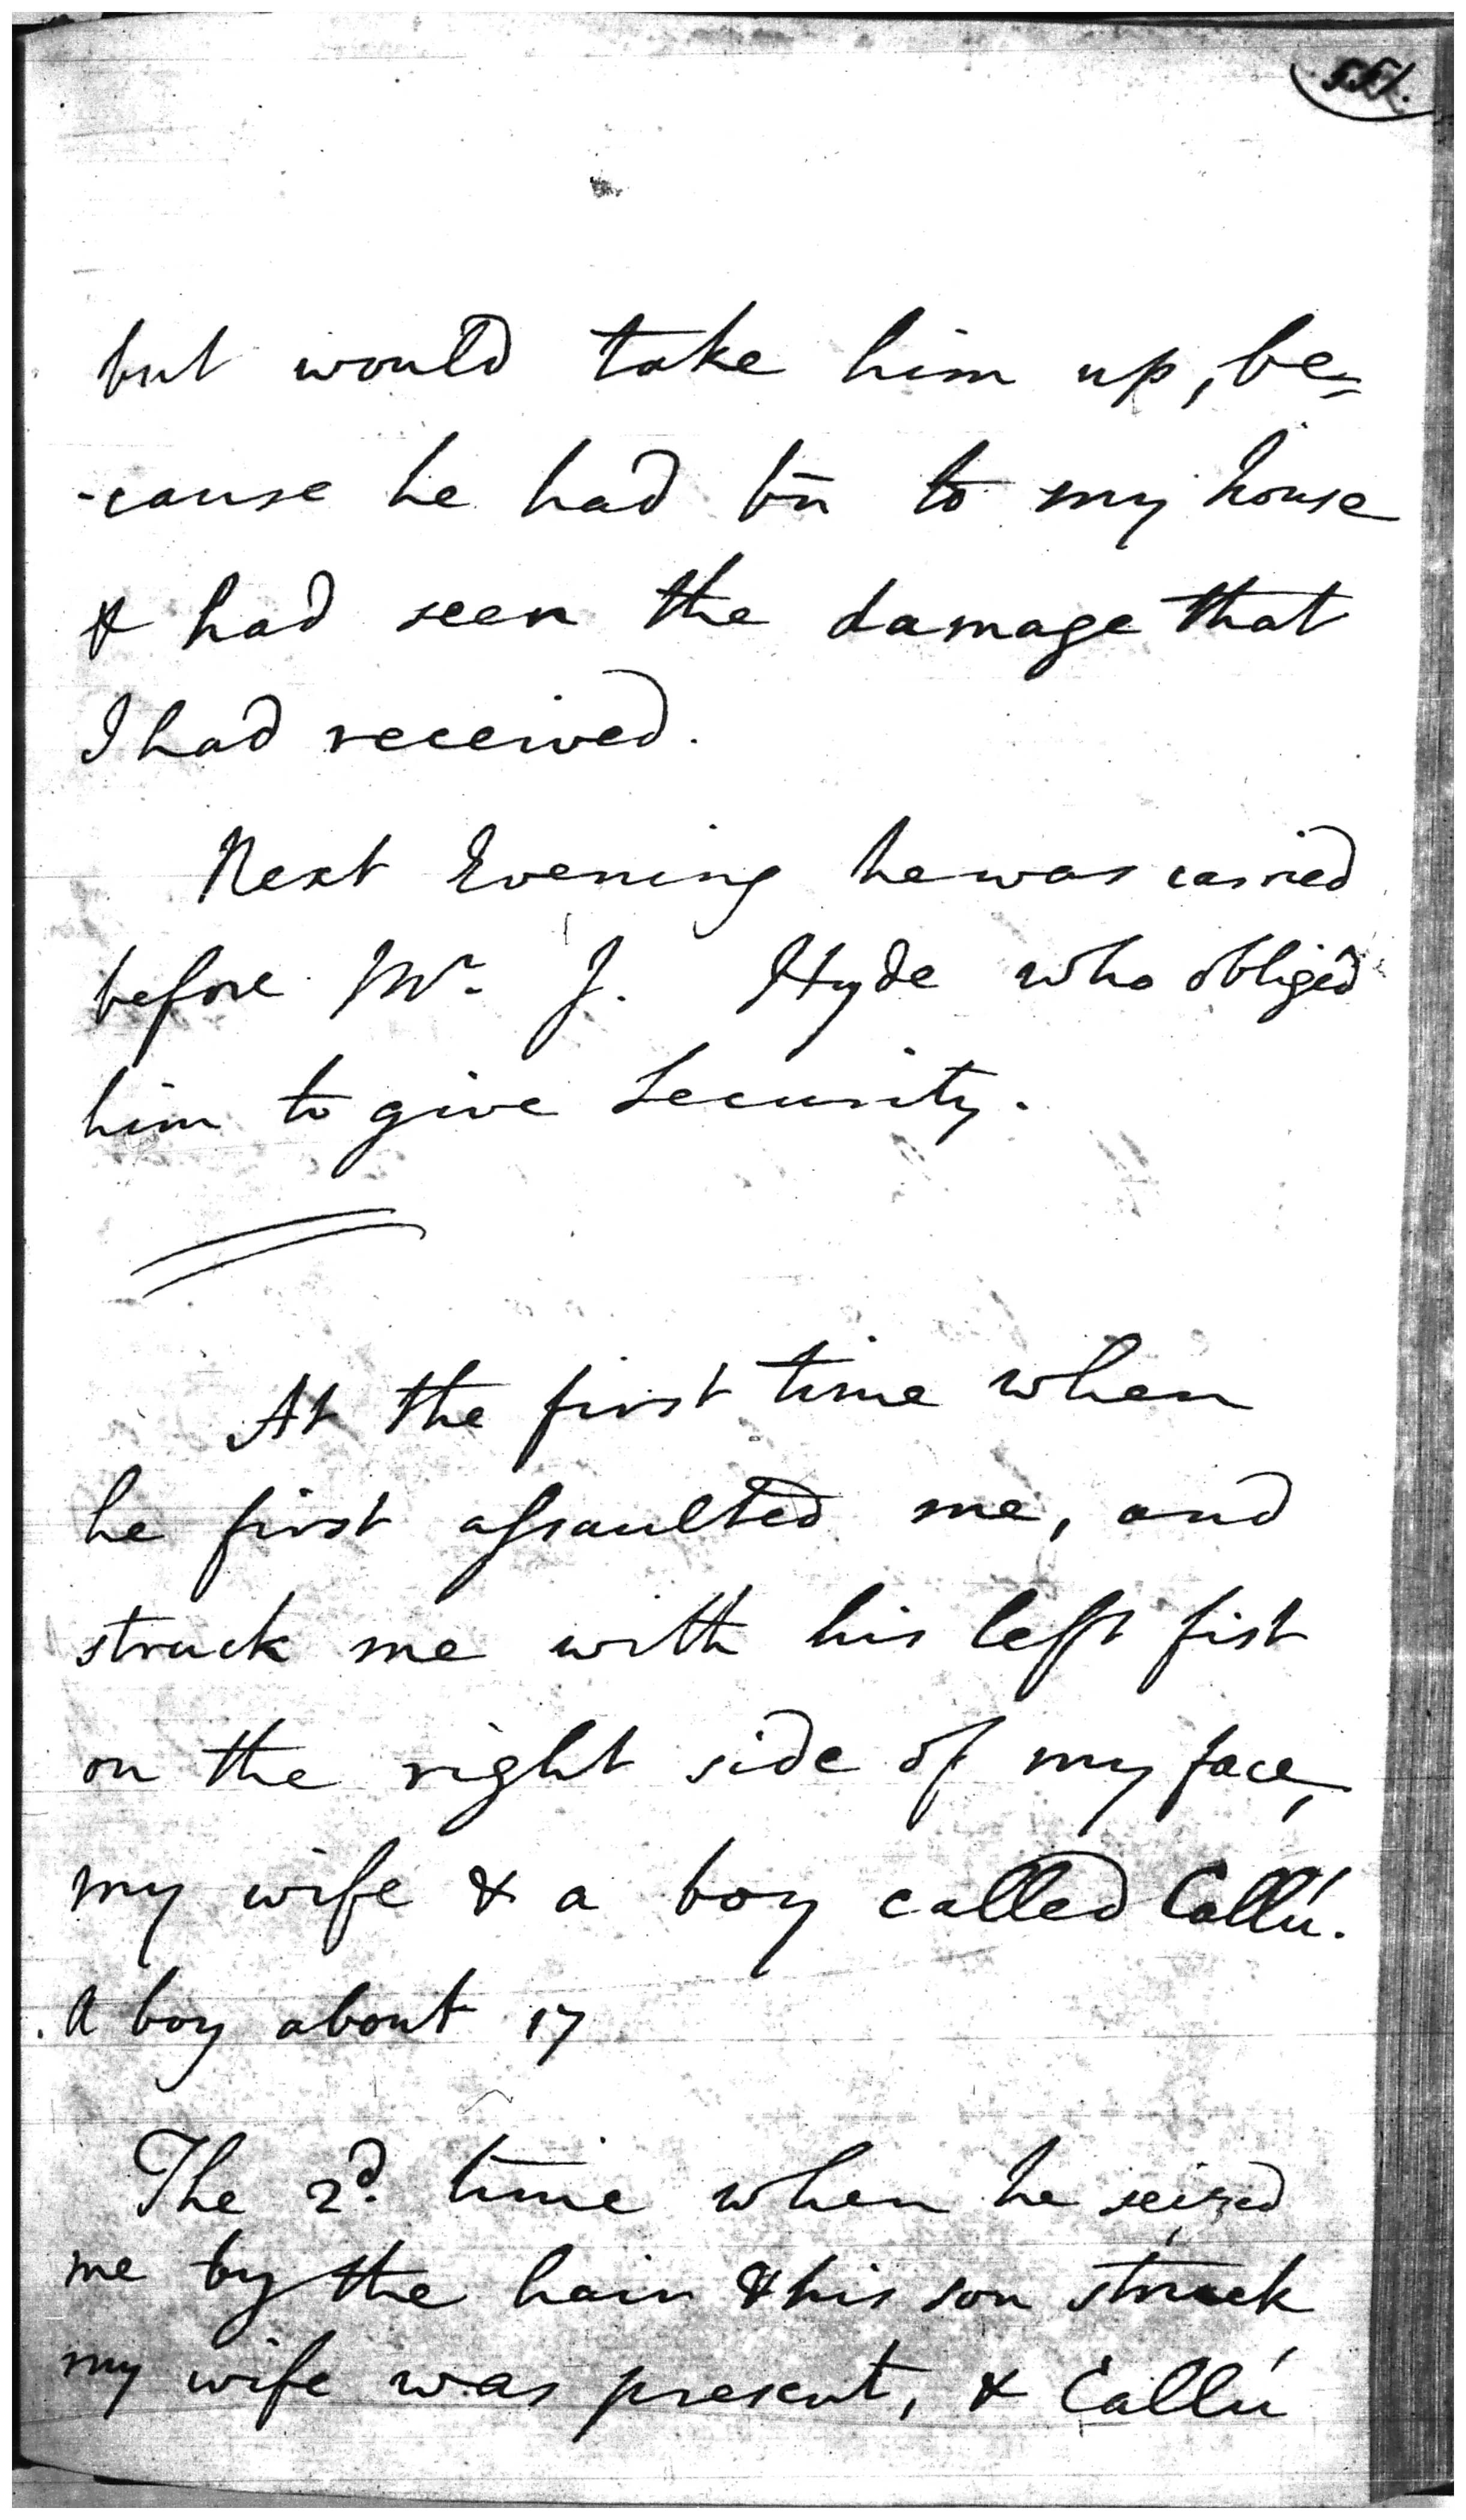 but would take him up, be=
-cause he had bn̄ to my house
& had seen the damage that
I had received.
Next Evening he was carried
before Mr. J. Hyde who obliged
him to give Security.
At the first time when
he first assaulted me, and
struck me with his left fist
on the right side of my face,
my wife & a boy called Callú.
A boy about 17
The 2d. time when he seized
me by the hair & his son struck
my wife was present, & Callú